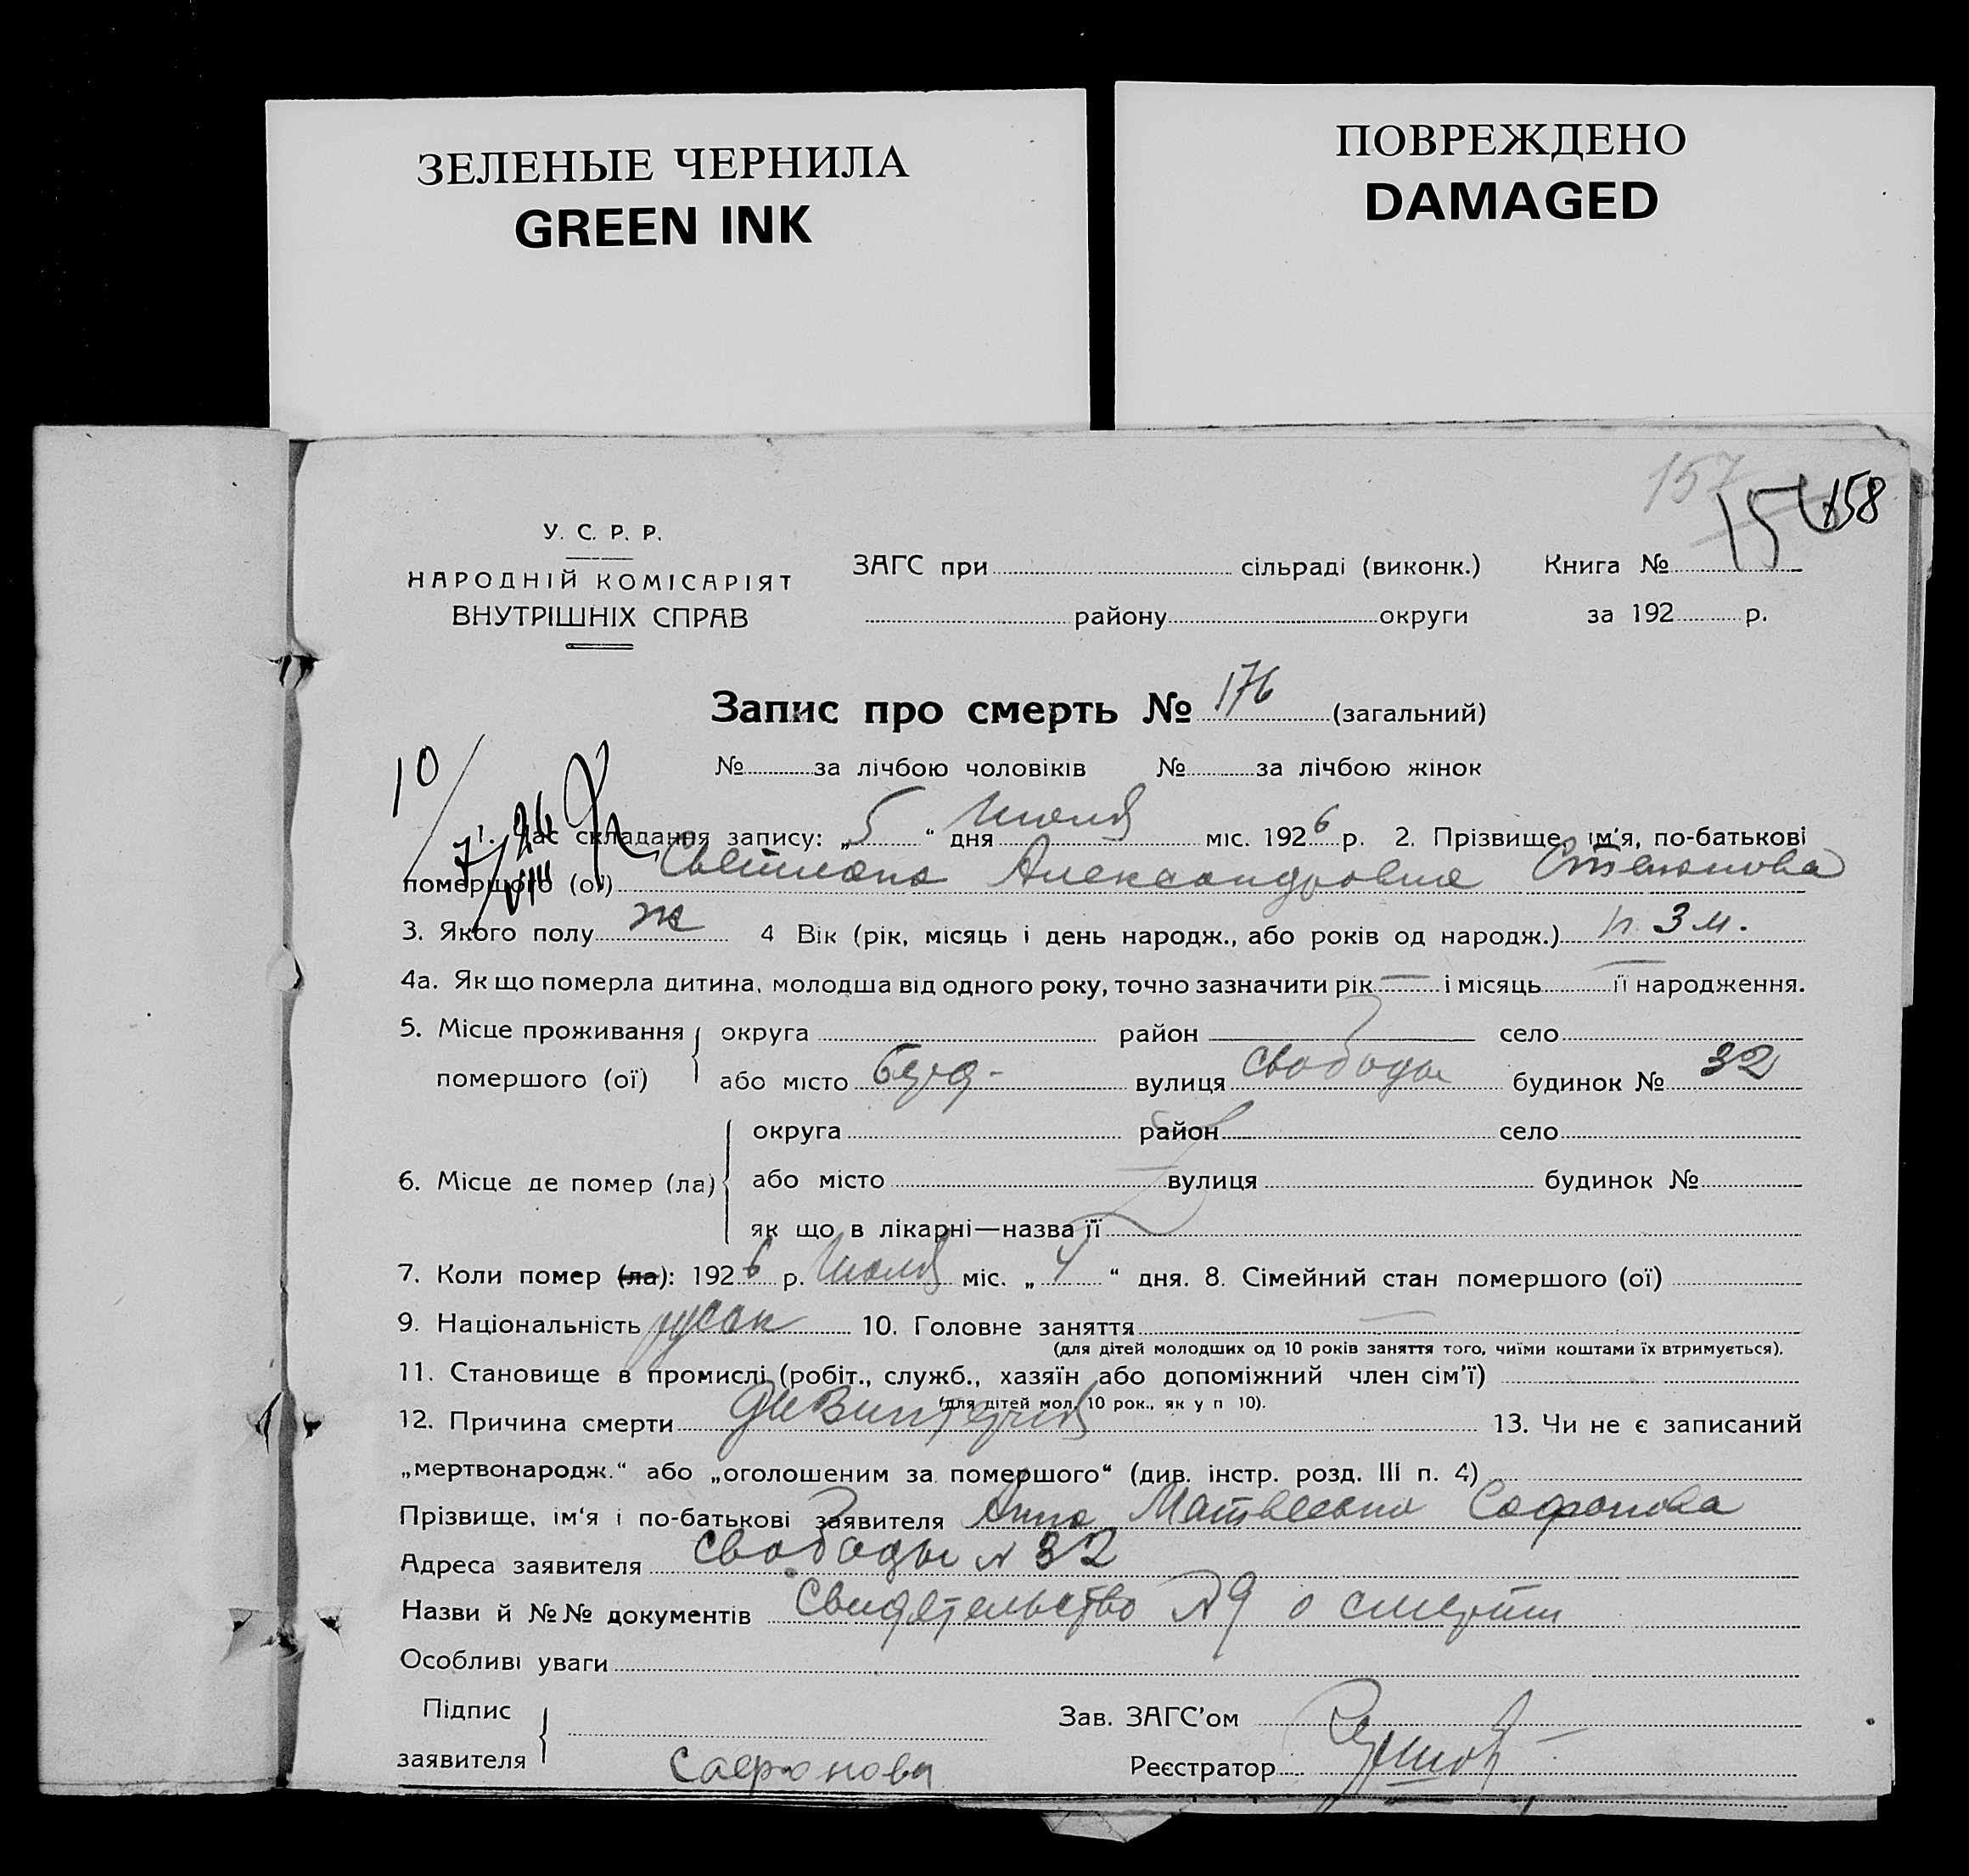 ЗЕЛЕНЫЕ ЧЕРНИЛА
GREEN INK
ПОВРЕЖДЕНО
DAMAGED
157
158
У. С. Р. Р.
НАРОДНІЙ КОМІСАРІЯТ
ВНУТРІШНІХ СПРАВ
ЗАГС при сільраді (виконк.) Книга №
району округи за 192 р.
Запис про смерть № 176 (загальний)
№ за лічбою чоловіків № за лічбою жінок
10
1. Час складання запису: „5“ дня Июля міс. 1926 р. 2. Прізвище, ім'я, по-батькові
помершого (ої) Светлана Александровна
3. Якого полу ж 4 Вік (рік, місяць і день народж., або років од народж.) 3 м.
4а. Як що померла дитина, молодша від одного року, точно зазначити рік — і місяць — її народження.
5. Місце проживання округа район село
помершого (ої) або місто вулиця Свободы будинок № 32
округа район село
6. Місце де помер (ла) або місто вулиця будинок №
як що в лікарні—назва її
7. Коли помер (ла): 1926 р. Июля міс. „4“ дня. 8. Сімейний стан помершого (ої)
9. Національність русск 10. Головне заняття —
(для дітей молодших од 10 років заняття того, чиїми коштами їх втримується).
11. Становище в промислі (робіт., служб., хазяїн або допоміжний член сім'ї)
(для дітей мол. 10 рок., як у п 10).
12. Причина смерти Дизинтерия 13. Чи не є записаний
„мертвонародж.“ або „оголошеним за помершого“ (див. інстр. розд. III п. 4)
Прізвище, ім'я і по-батькові заявителя Анна Матвеевна Сафонова
Адреса заявителя Свободы № 32
Назви й №№ документів Свидетельство № 9 о смерти
Особливі уваги
Підпис
заявителя Сафронова
Зав. ЗАГС'ом
Реєстратор